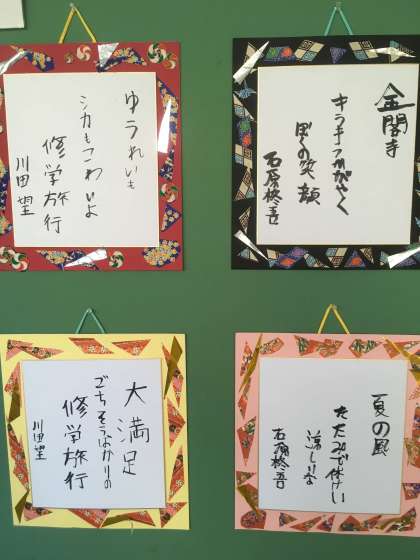 金閣寺
キラキラかがやく
ぼくの笑顔
石原柊吾
ゆうれいも
シカもこわいよ
修学旅行
川田望
夏の風
たたみで休けい
涼しいな
石原柊吾
大満足
ごちそうばかりの
修学旅行
川田望